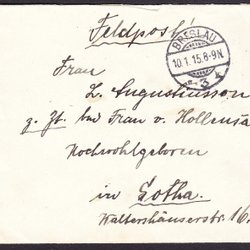 Feldpost!
BRESLAU
10.1.15.8-9N
* 3 *
Frau
L. Augustinusson
z. Zt. bei Frau v.
Hochwohlgeboren
in Gotha.
Waltershäuserstr. 16.